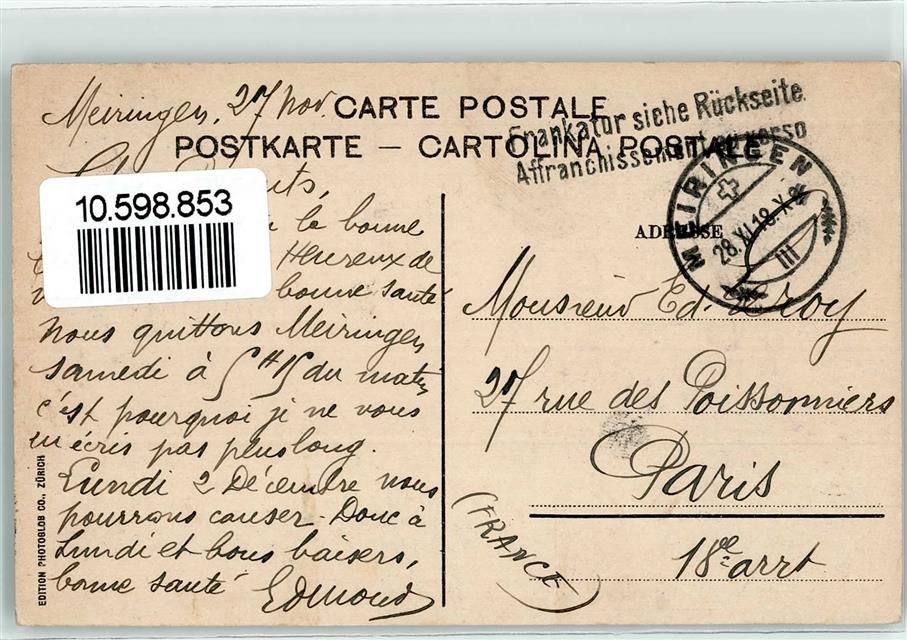 Meiringen, 27 Nov.
CARTE POSTALE
POSTKARTE — CARTOLINA POSTALE
Frankatur siehe Rückseite
Affranchissement au verso
MEIRINGEN
28.XI.18.X
III
10.598.853
la bonne
Heureux de
bonne santé
nous quittons Meiringen
samedi à 5H 15 du matin
c'est pourquoi je ne vous
en écris pas plus long.
Lundi 2 Décembre nous
pourrons causer. Donc à
Lundi et bons baisers,
bonne santé
Edmond
EDITION PHOTOGLOB CO., ZÜRICH
ADRESSE
Monsieur Ed. Leroy
27 rue des Poissonniers
Paris
(FRANCE)
18ee arrt